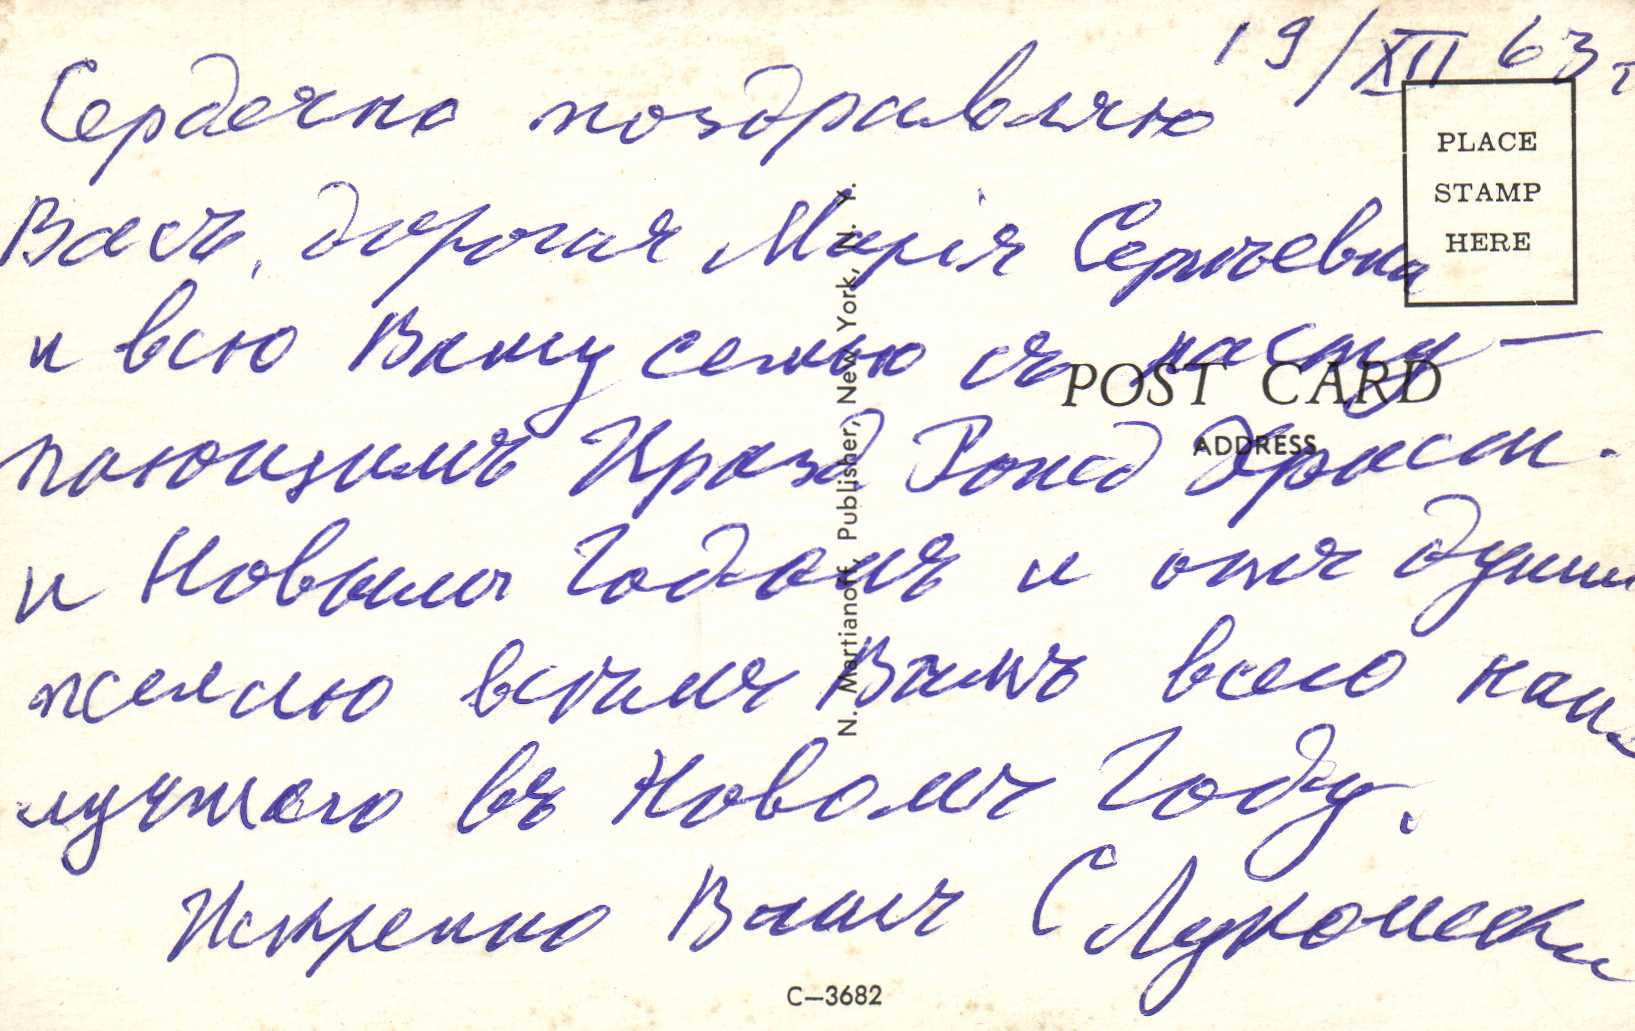 19/XII 63 г
Сердечно поздравляю
Васъ, дорогая Марія Сергѣевна
и всю Вашу семью съ насту-
пающимъ Празд Рожд Христ.
и Новымъ Годомъ и отъ души
желаю всѣмъ Вамъ всего наи-
лучшаго въ Новомъ Году.
Искренно Вашъ С Лукомски
PLACE
STAMP
HERE
POST CARD
ADDRESS
N. Martianoff, Publisher, New York, N. Y.
C-3682